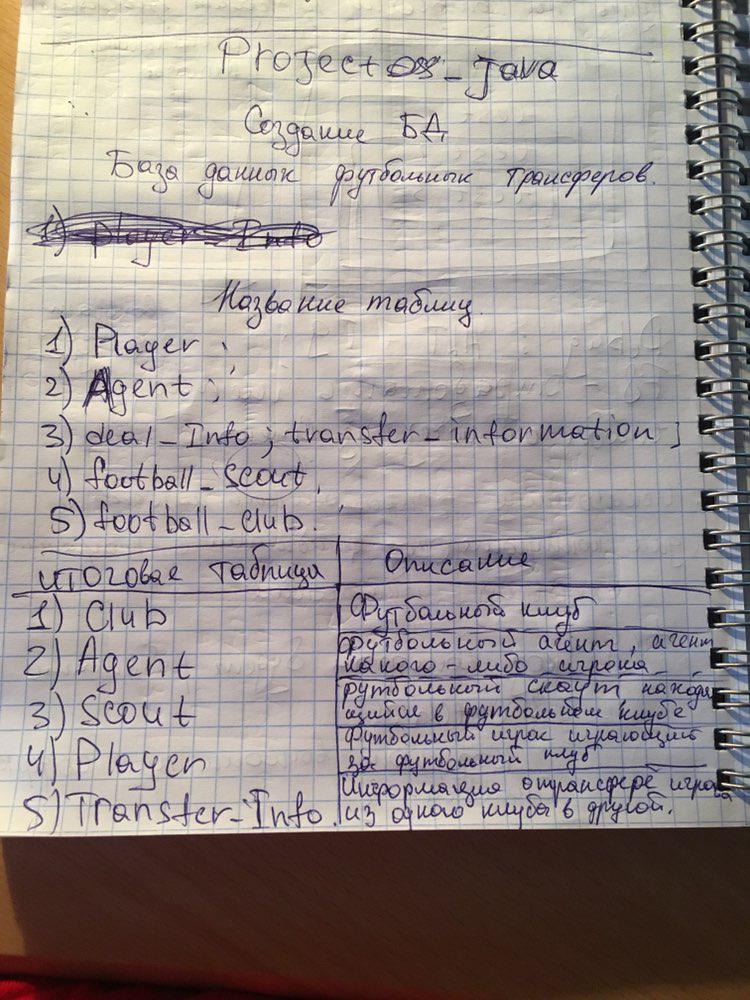 Project_java
Создание БД
База данных футбольных трансферов.
1) Player_Info
Название таблиц.
1) Player ;
2) Agent ;
3) deal_Info ; transfer_information ;
4) football_scout,
5) football_club.
итоговая таблица Описание
1) Club Футбольный клуб
2) Agent футбольный агент, агент
какого-либо игрока
3) Scout футбольный скаут находя
щийся в футбольном клубе
4) Player Футбольный игрок играющий
за футбольный клуб
5) Transfer_Info. Информация о трансфере игрока
из одного клуба в другой.